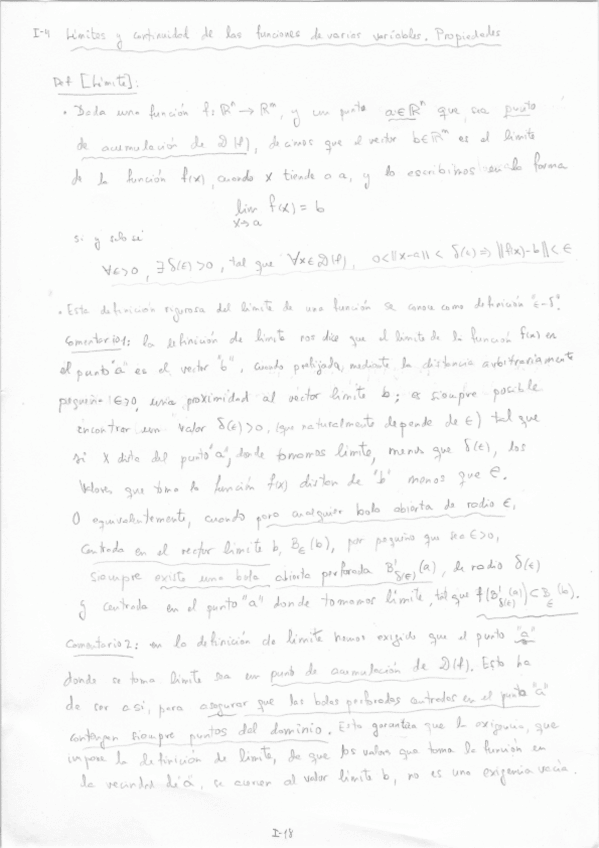 I-4 Límites y continuidad de las funciones de varias variables. Propiedades
Def [Límite]:
• Dada una función f: ℝⁿ → ℝᵐ, y un punto a∈ℝⁿ que sea punto
de acumulación de D(f), decimos que el vector b∈ℝᵐ es el límite
de la función f(x), cuando x tiende a a, y lo escribimos en la forma
lim f(x) = b
x→a
si y sólo si
∀ε>0, ∃δ(ε)>0, tal que ∀x∈D(f), 0<||x-a||< δ(ε) ⇒ ||f(x)-b||<ε
• Esta definición rigurosa del límite de una función se conoce como definición "ε-δ".
Comentario 1: la definición de límite nos dice que el límite de la función f(x) en
el punto "a" es el vector "b", cuando prefijada, mediante la distancia arbitrariamente
pequeña ε>0, una proximidad al vector límite b; es siempre posible
encontrar un valor δ(ε)>0, (que naturalmente depende de ε) tal que
si x dista del punto "a", donde tomamos límite, menos que δ(ε), los
valores que toma la función f(x) distan de "b" menos que ε.
O equivalentemente, cuando para cualquier bola abierta de radio ε,
centrada en el vector límite b, B_ε(b), por pequeño que sea ε>0,
siempre existe una bola abierta perforada B'_δ(ε)(a), de radio δ(ε)
y centrada en el punto "a" donde tomamos límite, tal que f(B'_δ(ε)(a))⊂B_ε(b).
Comentario 2: en la definición de límite hemos exigido que el punto "a"
donde se toma límite sea un punto de acumulación de D(f). Esto ha
de ser así, para asegurar que las bolas perforadas centradas en el punto "a"
contengan siempre puntos del dominio. Esto garantiza que la exigencia, que
impone la definición de límite, de que los valores que toma la función en
la vecindad de a, se acercan al valor límite b, no es una exigencia vacía.
I-18